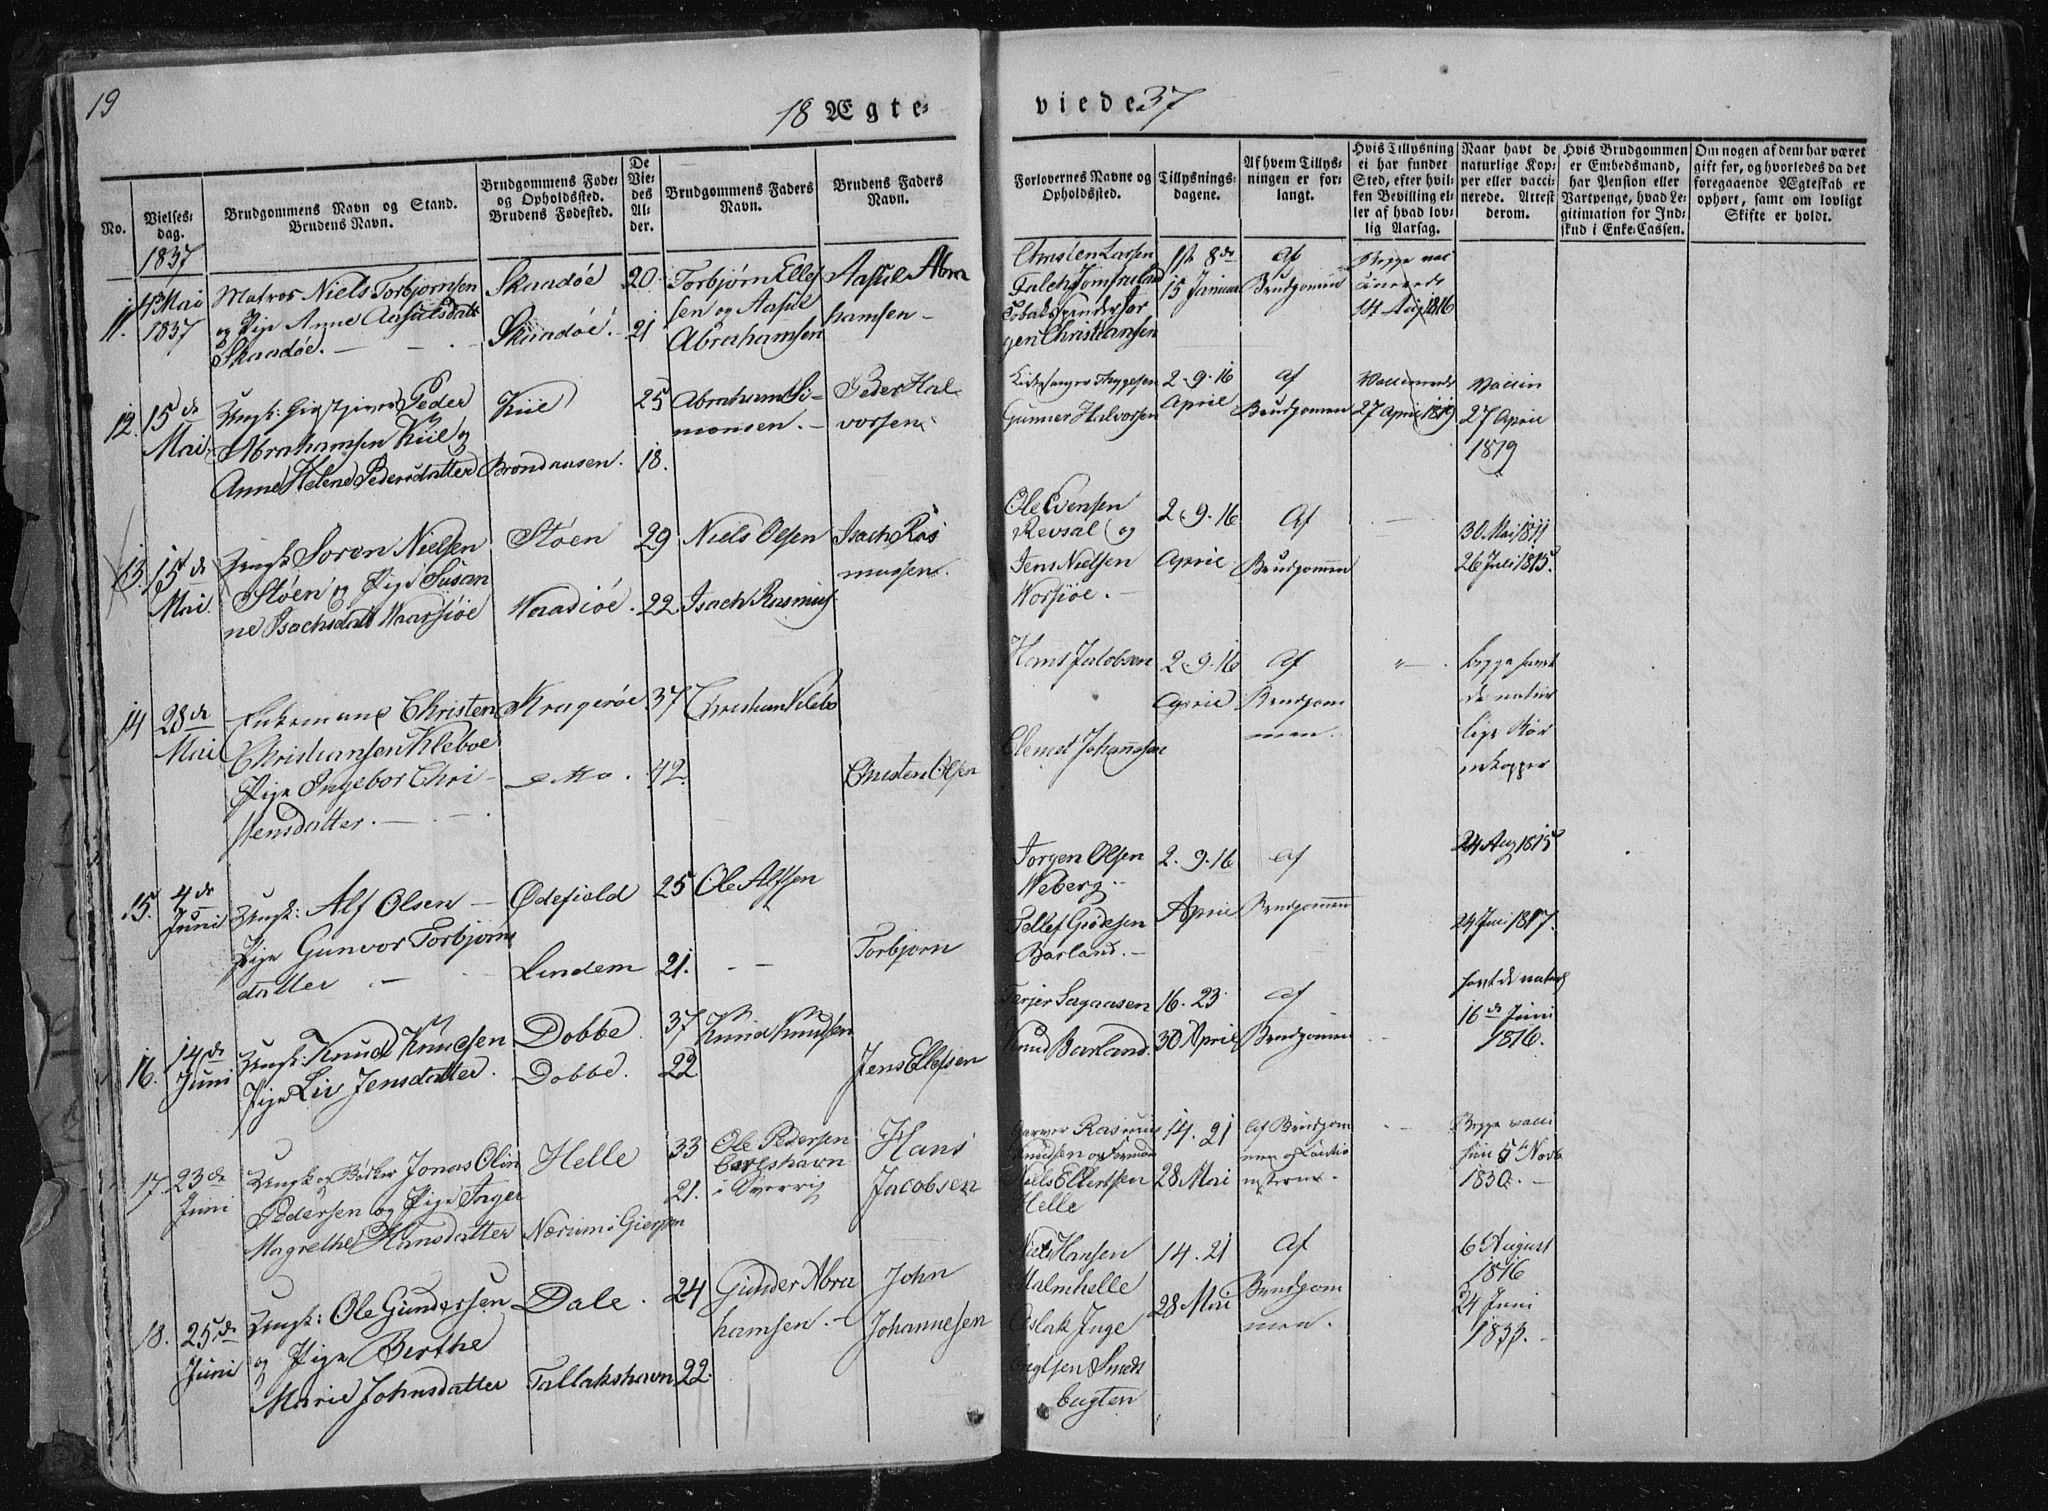 19
18 Ægte-
viede 37
No.
Vielses-
dag.
Brudgommens Navn og Stand.
Brudens Navn.
Brudgommens Føde-
og Opholdsted.
Brudens Fødested.
De
Vie-
des
Al-
der.
Brudgommens Faders
Navn.
Brudens Faders
Navn.
Forlovernes Navne og
Opholdsted.
Tillysnings-
dagene.
Af hvem Tillys-
ningen er for-
langt.
Hvis Tillysning
ei har fundet
Sted, efter hvil-
ken Bevilling el-
ler af hvad lov-
lig Aarsag.
Naar havt de
naturlige Kop-
per eller vacci-
nerede. Attest
derom.
Hvis Brudgommen
er Embedsmand,
har Pension eller
Vartpenge, hvad Le-
gitimation for Ind-
skud i Enke-Cassen.
Om nogen af dem har været
gift før, og hvorledes da det
foregaaende Ægteskab er
ophørt, samt om lovligt
Skifte er holdt.
1837
11. Mai
1837
Matros Niels Torbjørnsen
og Pige Anne Aasulsdatt
Skaadøe. —
Skaadøe
Skaadøe. —
20
21
Torbjørn Ellef
sen og Aasul
Abrahamsen
Aasul Abra
hamsen —
Christen Larsen
Falch Jomfruland
gen Christiansen
1st 8de
15 Januar
Af
Brudgomen
Begge vac
cinerede
14 Aug 1816
12. 15de
Mai
Ungk: Gjestgiver Peder
Abrahamsen Kiil og
Anne Helene Pedersdatter
Kiil
Brondausen.
25
18.
Abraham Si-
monsen. —
Peder Hal
vorsen
Gunner Halvorsen
2 - 9. 16
April
af
Brudgommen
Vaccinerede
27 April 1819
Vaccin
27 April
1819
13. 15de
Mai
Ungk: Søren Nielsen
Støen og Pige Susan
ne Isachsdatt Waarsiøe
Støen
Waasiøe.
29
22
Niels Olsen
Isach Rasmus
Isach Ras
mussen.
Ole Evensen
Revsal og
Jens Nielsen
Worsiøe. —
2 - 9. 16
April
Af
Brudgommen
30 Mai 1811
26 Juli 1815.
14 28de
Mai
Enkemand Christen
Christiansen Kleboe
Pige Ingebor Chri-
stensdatter. —
Kragerøe
ditto.
37
42.
Christian Klebo
Christen Olsen
Hans Jacobsen
Clemet Johannsen
2 - 9. 16
April
Af
Brudgom
men.
begge havt
de natur
lige Bør
nekopper
15. 4de
Juni
Ungk: Alf Olsen —
Pige Gunvor Torbjørns
datter —
Ødefiald
Lindem
25
21.
Ole Alfsen
Torbjørn
Jorgen Olsen
Weberg. -
Tellef Giødesen
Barland. —
2. 9. 16
April
af
Brudgommen
24 Aug 1815
24 Juni 1817.
16. 14de
Juni
Ungk: Knud Knudsen
Pige Liv Jensdatter.
Dobbe
Dobbe.
37
22
Knud Knudsen
Jens Ellefsen
Terjer Sagaasen
Knud Barland.
16. 23
30 April
af
Brudgomen
havt de naturl
16de Juni
1816.
17. 23de
Juni
Ungk og Bødker Jonas Olin
Pedersen og Pige Inger
Magrethe Hansdatter
Helle
Nærum i Gierpen
33
21.
Ole Pedersen
Carlshavn
i Sverrig
Hans
Jacobsen
Garver Rasmus
Knudsen og Formand
Niels Ellertsen
Helle
14. 21
28 Mai
af Brudgom
Begge vacci
5te Novb
1830. —
18. 25de
Juni
Ungk: Ole Gundersen
og Pige Berthe
Marie Johnsdatter
Dale.
Tallakshavn
24
22.
Gunder Abra
hamsen. —
John
Johannesen
Niels Hansen
Malmhelle
Aslak Inge
brigtsen Smeds
bugten
14. 21
28 Mai
Af
Brudgom
men.
6 August
1816
24 Juni
1833. —